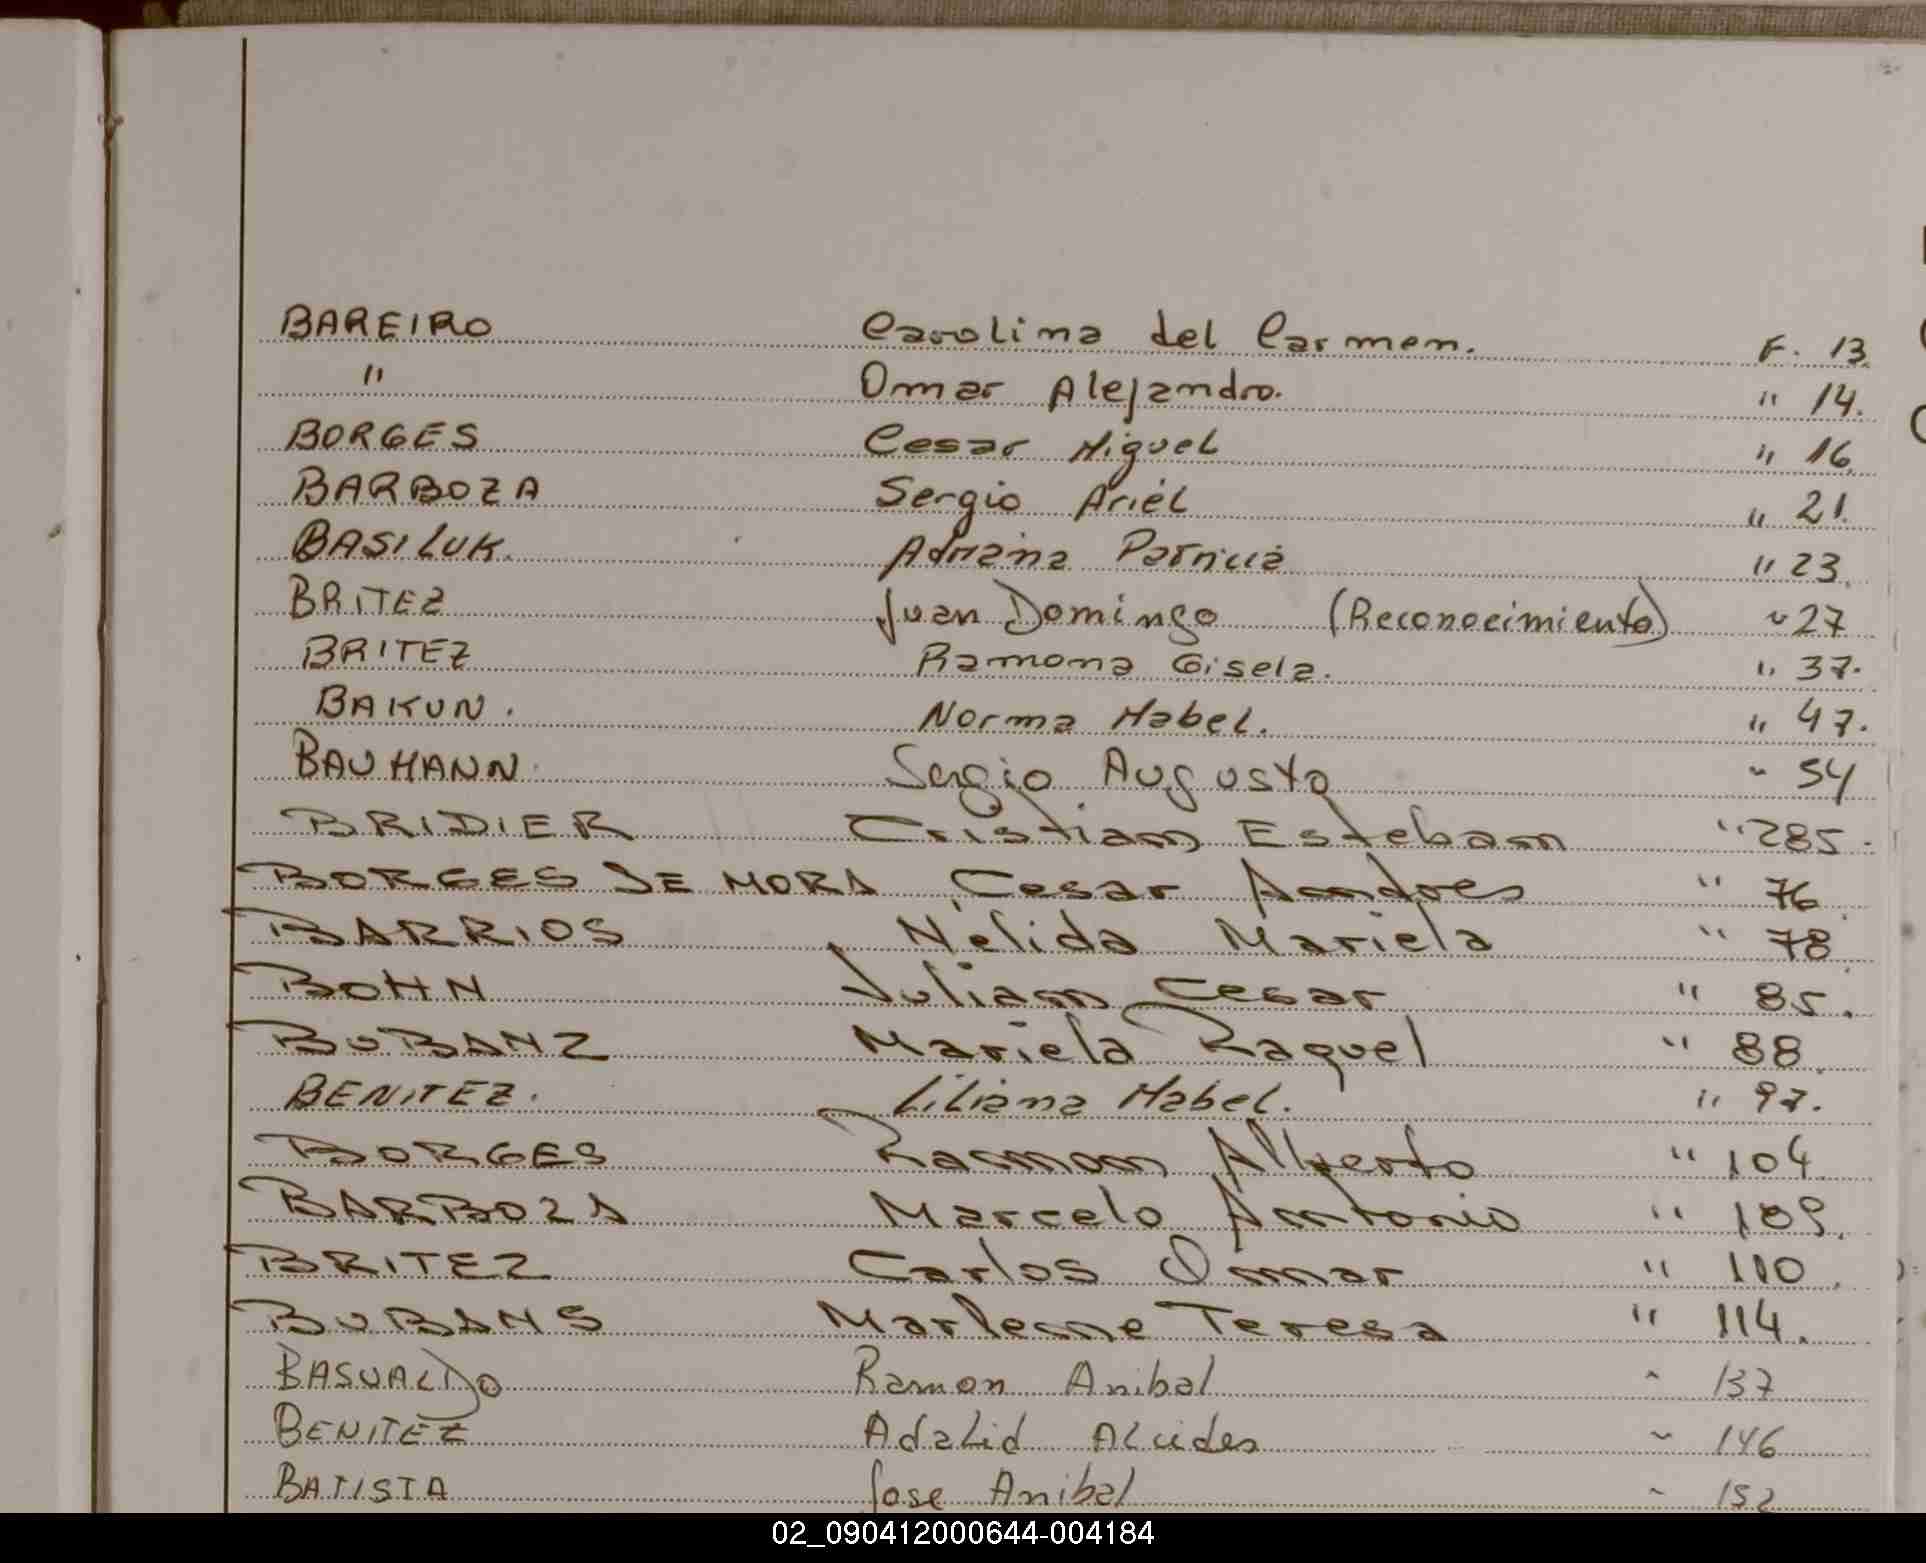 BAREIRO Carolina del Carmen. F. 13.
" Omar Alejandro. " 14.
BORGES Cesar Miguel " 16.
BARBOZA Sergio Ariél " 21.
BASILUK. Adriana Patricia " 23.
BRITEZ Juan Domingo (Reconocimiento) " 27
BRITEZ Ramona Gisela. " 37.
BAKUN. Norma Mabel. " 47.
BAUMANN. Sergio Augusto " 54
BRIDIER Cristian Esteban " 285.
BORGES DE MORA Cesar Andres " 76.
BARRIOS Nélida Mariela " 78.
BOHN Julian Cesar " 85.
BUBANZ Mariela Raquel " 88.
BENITEZ. Liliana Mabel. " 97.
BORGES Ramon Alberto " 104.
BARBOZA Marcelo Antonio " 109.
BRITEZ Carlos Omar " 110.
BUBANS Marlene Teresa " 114.
BASUALDO Ramon Anibal " 137
BENITEZ Adalid Alcides " 146
BATISTA Jose Anibal " 152
02_090412000644-004184